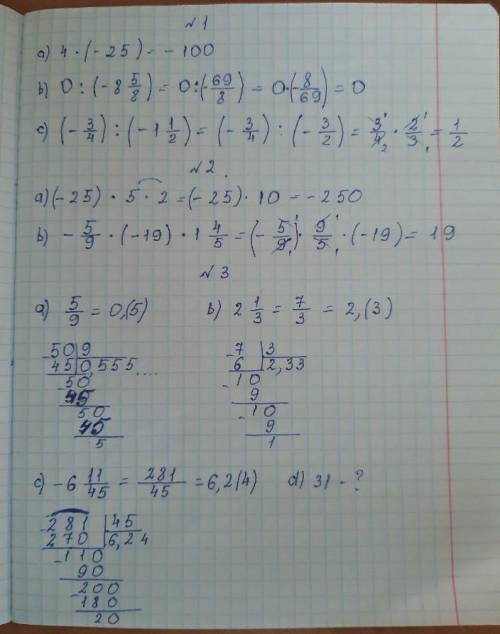 №1
a) 4 · (-25) = -100
b) 0 : (-8 5/8) = 0 : (-69/8) = 0 · (-8/69) = 0
c) (-3/4) : (-1 1/2) = (-3/4) : (-3/2) = 3/4 · 2/3 = 1/2
№2.
a) (-25) · 5 · 2 = (-25) · 10 = -250
b) -5/9 · (-19) · 1 4/5 = (-5/9) · 9/5 · (-19) = 19
№3
a) 5/9 = 0,(5) b) 2 1/3 = 7/3 = 2,(3)
50 9 7 3
45 0,555.... 6 2,33
50 10
45 9
50 10
45 9
5 1
c) -6 11/45 = 281/45 = 6,2(4) d) 31 - ?
281 45
270 6,24
110
90
200
180
20